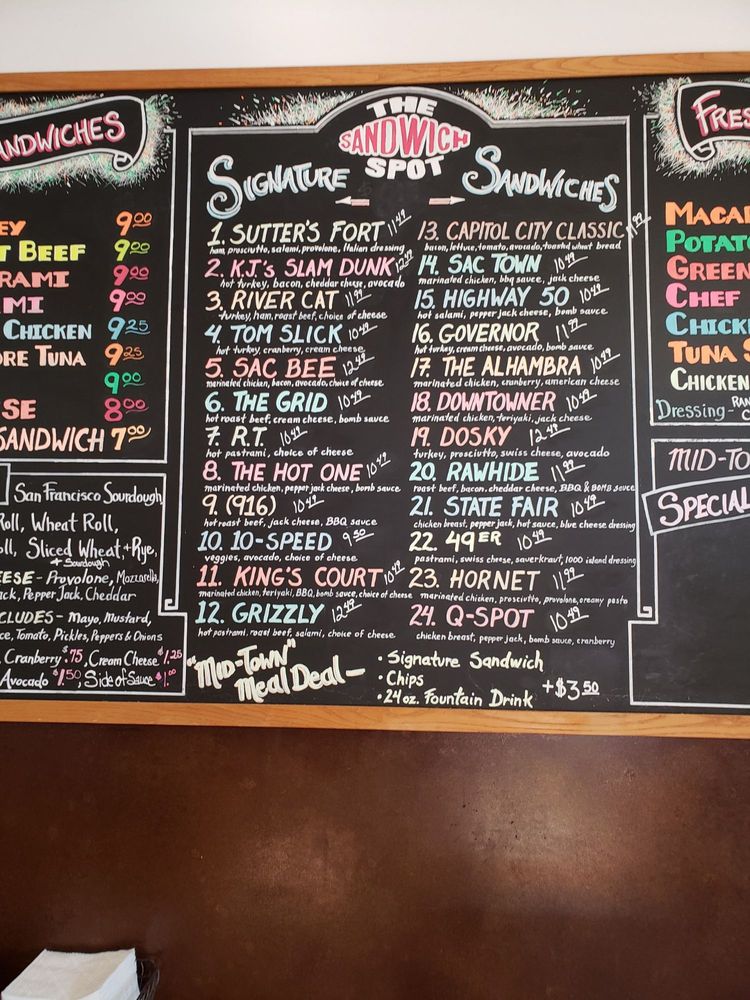 ANDWICHES
EY 9.00
T BEEF 9.00
RAMI 9.00
MI 9.00
CHICKEN 9.25
ORE TUNA 9.25
9.00
SE 8.00
SANDWICH 7.00
San Francisco Sourdough,
Roll, Wheat Roll,
oll, Sliced Wheat, + Rye,
+ Sourdough
EESE - Provolone, Mozzarella,
ack, Pepper Jack, Cheddar
CLUDES - Mayo, Mustard,
ce, Tomato, Pickles, Peppers & Onions
Cranberry $.75, Cream Cheese $1.25
Avocado $1.50, Side of Sauce $1.00
THE
SANDWICH
SPOT
SIGNATURE SANDWICHES
1. SUTTER'S FORT 11.49
ham, prosciutto, salami, provolone, Italian dressing
2. K.J.'s SLAM DUNK
hot turkey, bacon, cheddar cheese, avocado
3. RIVER CAT 11.99
turkey, ham, roast beef, choice of cheese
4. TOM SLICK 10.49
hot turkey, cranberry, cream cheese
5. SAC BEE 12.49
marinated chicken, bacon, avocado, choice of cheese
6. THE GRID 10.49
hot roast beef, cream cheese, bomb sauce
7. R.T. 10.49
hot pastrami, choice of cheese
8. THE HOT ONE 10.49
marinated chicken, pepper jack cheese, bomb sauce
9. (916) 10.49
hot roast beef, jack cheese, BBQ sauce
10. 10-SPEED 9.50
veggies, avocado, choice of cheese
11. KING'S COURT 10.49
marinated chicken, teriyaki, BBQ, bomb sauce, choice of cheese
12. GRIZZLY 12.49
hot pastrami, roast beef, salami, choice of cheese
13. CAPITOL CITY CLASSIC
bacon, lettuce, tomato, avocado, toasted wheat bread
14. SAC TOWN 10.49
marinated chicken, bbq sauce, jack cheese
15. HIGHWAY 50 10.49
hot salami, pepper jack cheese, bomb sauce
16. GOVERNOR 11.99
hot turkey, cream cheese, avocado, bomb sauce
17. THE ALHAMBRA 10.99
marinated chicken, cranberry, american cheese
18. DOWNTOWNER 10.49
marinated chicken, teriyaki, jack cheese
19. DOSKY 12.49
turkey, prosciutto, swiss cheese, avocado
20. RAWHIDE 11.99
roast beef, bacon, cheddar cheese, BBQ & BOMB sauce
21. STATE FAIR 10.49
chicken breast, pepper jack, hot sauce, blue cheese dressing
22. 49ER 10.49
pastrami, swiss cheese, sauerkraut, 1000 island dressing
23. HORNET 11.99
marinated chicken, prosciutto, provolone, creamy pesto
24. Q-SPOT 10.49
chicken breast, pepper jack, bomb sauce, cranberry
"MID-TOWN"
Meal Deal -
• Signature Sandwich
• Chips
• 24 oz. Fountain Drink
+$3.50
FRES
MACA
POTAT
GREEN
CHEF
CHICK
TUNA S
CHICKEN
RAN
Dressing -
MID-TO
SPECIAL